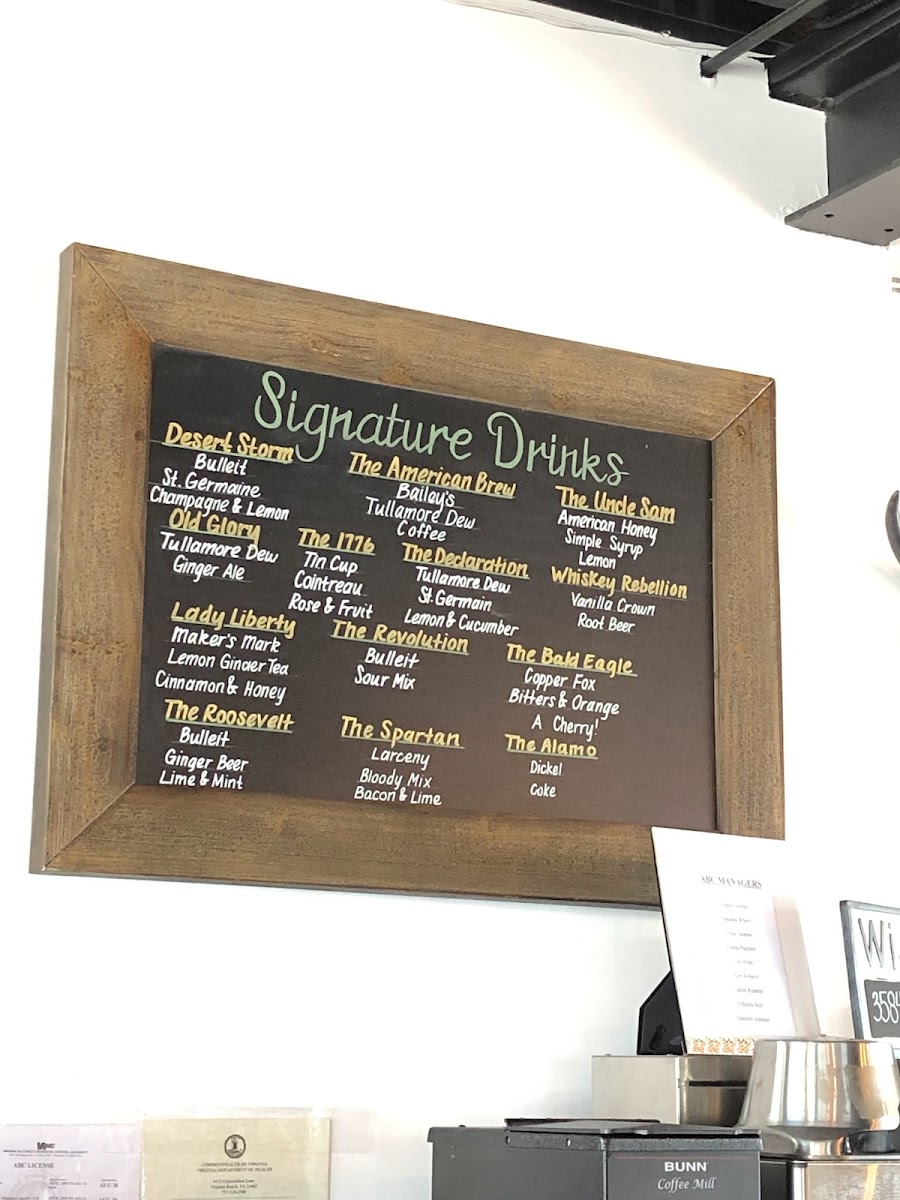 Signature Drinks
Desert Storm
Bulleit
St. Germaine
Champagne & Lemon
Old Glory
Tullamore Dew
Ginger Ale
Lady Liberty
Maker's Mark
Lemon Ginger Tea
Cinnamon & Honey
The Roosevelt
Bulleit
Ginger Beer
Lime & Mint
The American Brew
Bailey's
Tullamore Dew
Coffee
The 1776
Tin Cup
Cointreau
Rose & Fruit
The Declaration
Tullamore Dew
St. Germain
Lemon & Cucumber
The Revolution
Bulleit
Sour Mix
The Spartan
Larceny
Bloody Mix
Bacon & Lime
The Uncle Sam
American Honey
Simple Syrup
Lemon
Whiskey Rebellion
Vanilla Crown
Root Beer
The Bald Eagle
Copper Fox
Bitters & Orange
A Cherry!
The Alamo
Dickel
Coke
ABC MANAGERS
Wi
358
ABC LICENSE
COMMONWEALTH OF VIRGINIA
VIRGINIA DEPARTMENT OF HEALTH
BUNN
Coffee Mill